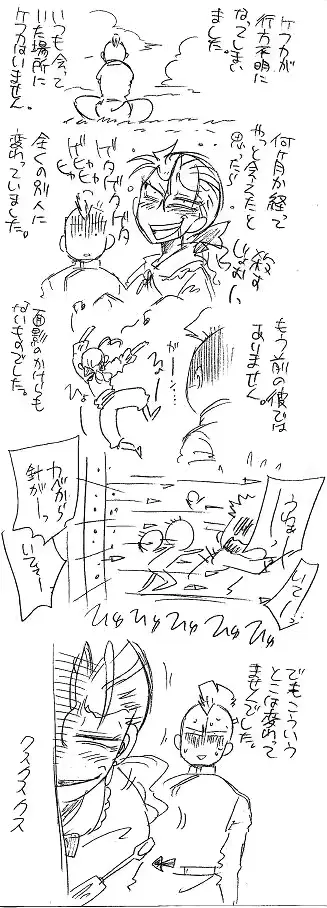 ケフカが
行方不明に
なってしまい
ました。
いつも会って
いた場所に
ケフカはいません。
何ヶ月か経って
やっと会えたと
思ったら
殺す
じょおー
ゲタゲタゲタ
ゲヒャヒャヒャ
全くの別人に
変わっていました。
もう前の彼では
ありません。
がーん…
面影のかけらも
ないものでした。
いてーっ
カベから
針がーっ
いてぇー
ひゅ ひゅ ひゅ ひゅ ひゅ
でもこういう
とこは変わって
ませんでした。
クスクスクス